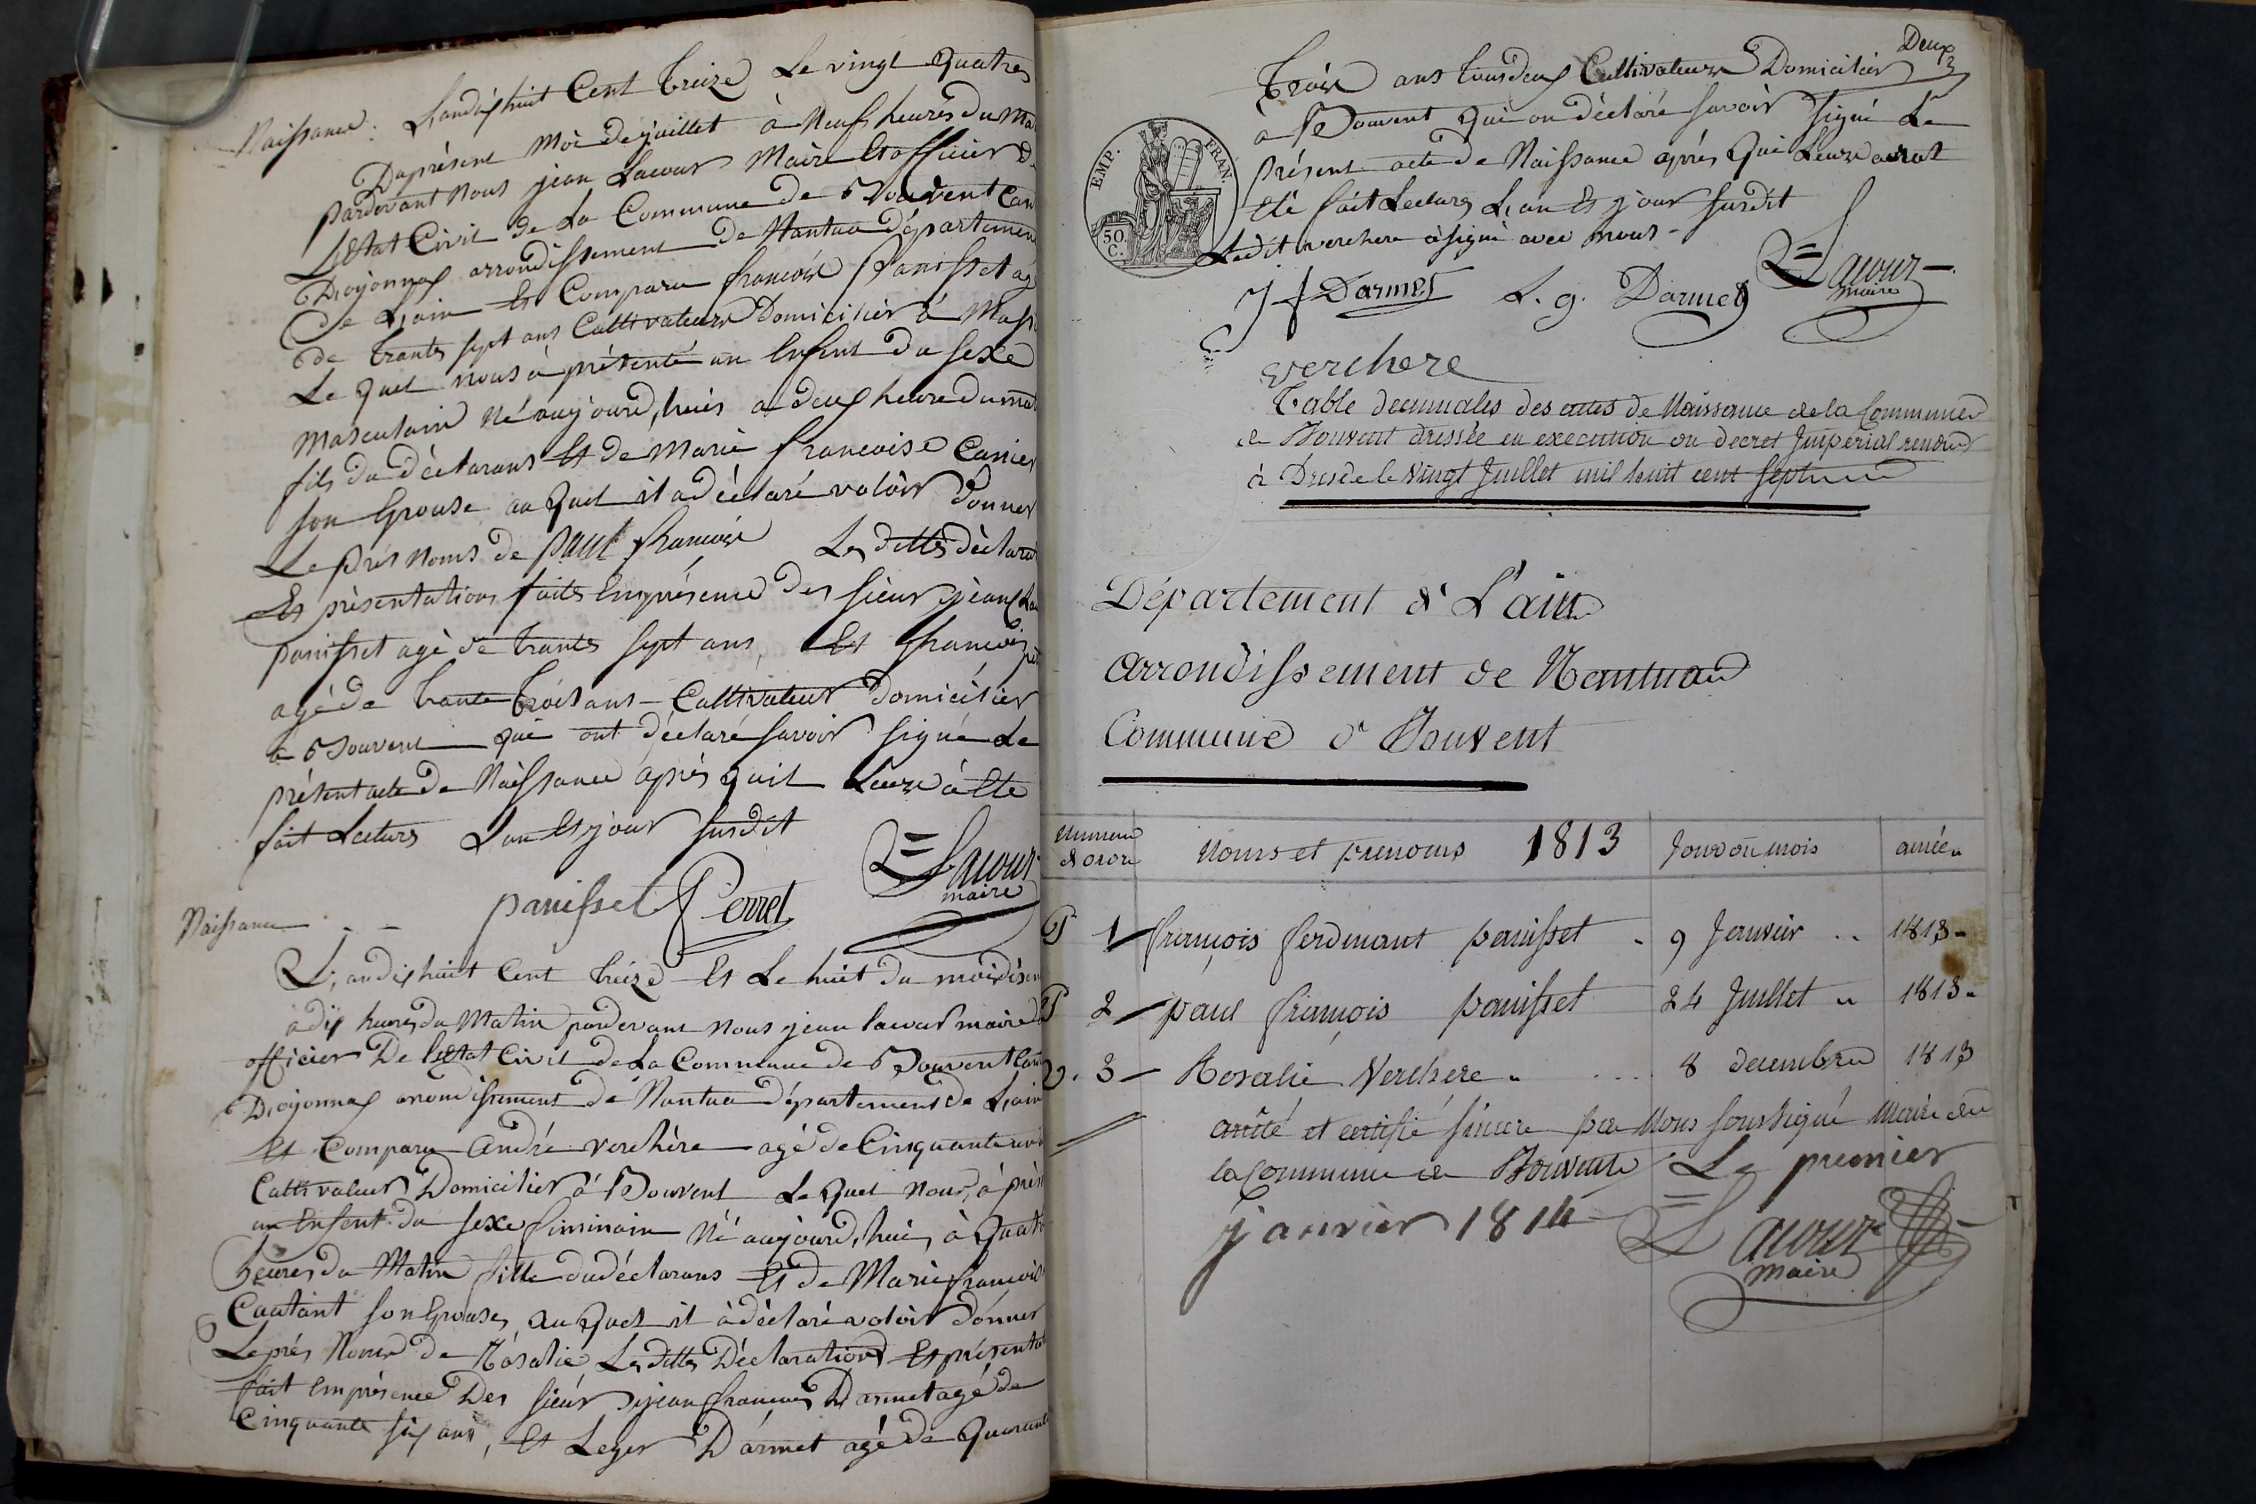 Naissance. L,andixhuit Cent treize Le vingt Quatres
Duprésent Moi de juillet à Neuf heures du Ma
pardevant Nous jean Lacour Maire Et officier D
L,Etat Civil de La Commune de Bouvent Can
D,oyonnax arrondissement de Nantua département
De L,ain Est Comparu francoise panisset agé
de trantes sept ans Cultivateur Domicilier à
Le quel nous à présenté un Enfent du sexe
Masculain Né aujourd,huis a deux heure du mat
fils du déclarans Et de Marie francoise Carrier
son Epouse au quel il a déclaré valoir donner
Le prés Noms de paul francoise Les dittes déclara
Et présentations faite En présence Des sieur jean
panisset agé de trantes sept ans, Et francois
agé de trante trois ans Cultivateur Domicilier
a Bouvent qui ont déclaré savoir signé Le
présent acte de Naissance après quil Leure à Ete
fait Lecture L'an Et jour susdit
panisset Perret Lacour
maire
Naissance
L,an dixhuit Cent treize Et Le huit du moi
à dix heures du Matin pardevant nous jean lacour maire
officier De l'Etat Civil de La Commune de Bouvent Can
D,oyonnax arrondissement de Nantua département de L,ain
Est Comparu André verchère agé de Cinquante
Cultivateur Domicilier à Bouvent Le quel Nous à prés
un Enfent du sexe feminain Né aujourd,hui, à Quatre
heures du Matin fille du déclarans Et de Marie francoise
Cuatant son Epouse, au quel il à déclaré valoir donner
Le prés Noms de Rosalie Les dittes Déclarations Et présenta
fait En présence Des sieur jean francois Darmet agé de
Cinquante six ans, Et Leger Darmet agé de Quarante
Deux
trois ans tous deux Cultivateur Domicilier
à Bouvent qui on déclaré savoir signé Le
présent acte de Naissance après que Leure aurat
Eté fait Lecture L,an Et jour susdit
Ledit verchere à signé avec nous
EMP. FRAN.
50.
C.
J f Darmet L. g. Darmet Lacour
maire
verchere
Table decennales des actes de Naissance de la Commune
de Bouvent dressée en execution du decret Imperial rendu
à Dresde le Vingt Juillet mil huit cent sept
Département d L'ain
arrondissement de Nantua
Commune d Bouvent
numero
d'ordre noms et prenoms 1813 Jour du mois année
P 1 françois ferdinant panisset 9 Janvier 1813
P 2 paul françois panisset 24 Juillet 1813
V. 3 Rosalie Verchere 8 decembre 1813
arrêté et certifié sincere par Nous soussigné Maire de
la Commune de Bouvent Le premier
janvier 1814 Lacour
maire